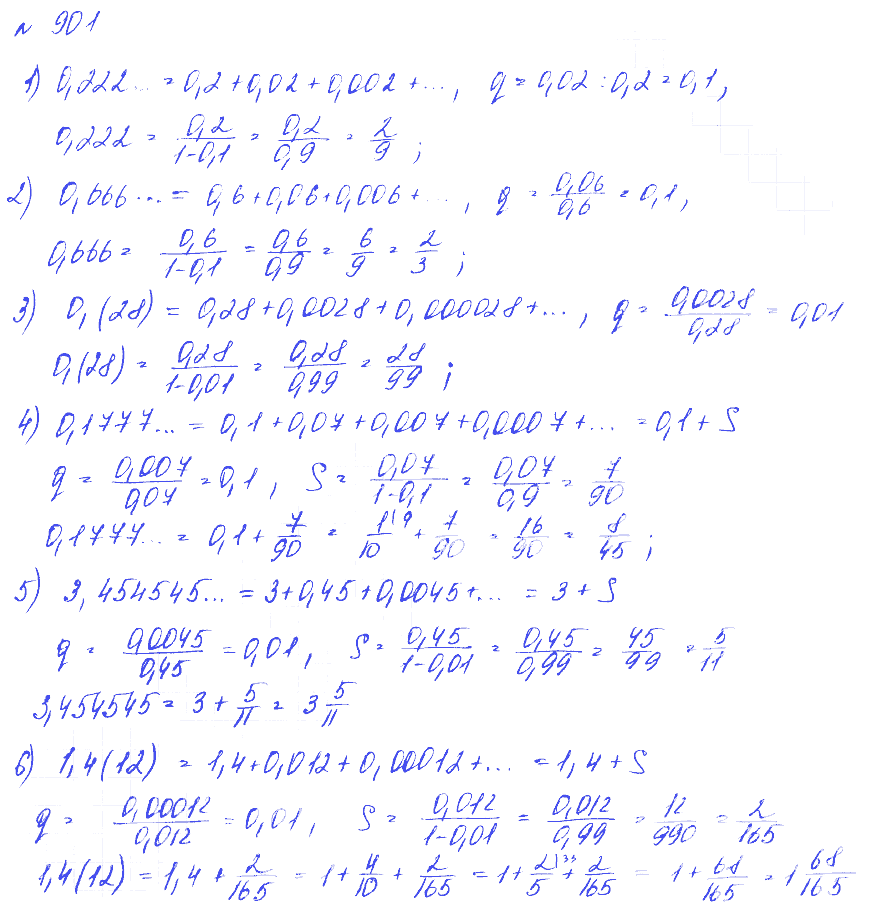 № 901
1) 0,222... = 0,2 + 0,02 + 0,002 + ..., q = 0,02 : 0,2 = 0,1,
0,222 = 0,2/(1-0,1) = 0,2/0,9 = 2/9 ;
2) 0,666... = 0,6 + 0,06 + 0,006 + ..., q = 0,06/0,6 = 0,1,
0,666 = 0,6/(1-0,1) = 0,6/0,9 = 6/9 = 2/3 ;
3) 0,(28) = 0,28 + 0,0028 + 0,000028 + ..., q = 0,0028/0,28 = 0,01
0,(28) = 0,28/(1-0,01) = 0,28/0,99 = 28/99 ;
4) 0,1777... = 0,1 + 0,07 + 0,007 + 0,0007 + ... = 0,1 + S
q = 0,007/0,07 = 0,1, S = 0,07/(1-0,1) = 0,07/0,9 = 7/90
0,1777... = 0,1 + 7/90 = 1|9/10 + 7/90 = 16/90 = 8/45 ;
5) 3,454545... = 3 + 0,45 + 0,0045 + ... = 3 + S
q = 0,0045/0,45 = 0,01, S = 0,45/(1-0,01) = 0,45/0,99 = 45/99 = 5/11
3,454545 = 3 + 5/11 = 3 5/11
6) 1,4(12) = 1,4 + 0,012 + 0,00012 + ... = 1,4 + S
q = 0,00012/0,012 = 0,01, S = 0,012/(1-0,01) = 0,012/0,99 = 12/990 = 2/165
1,4(12) = 1,4 + 2/165 = 1 + 4/10 + 2/165 = 1 + 2|33/5 + 2/165 = 1 + 68/165 = 1 68/165